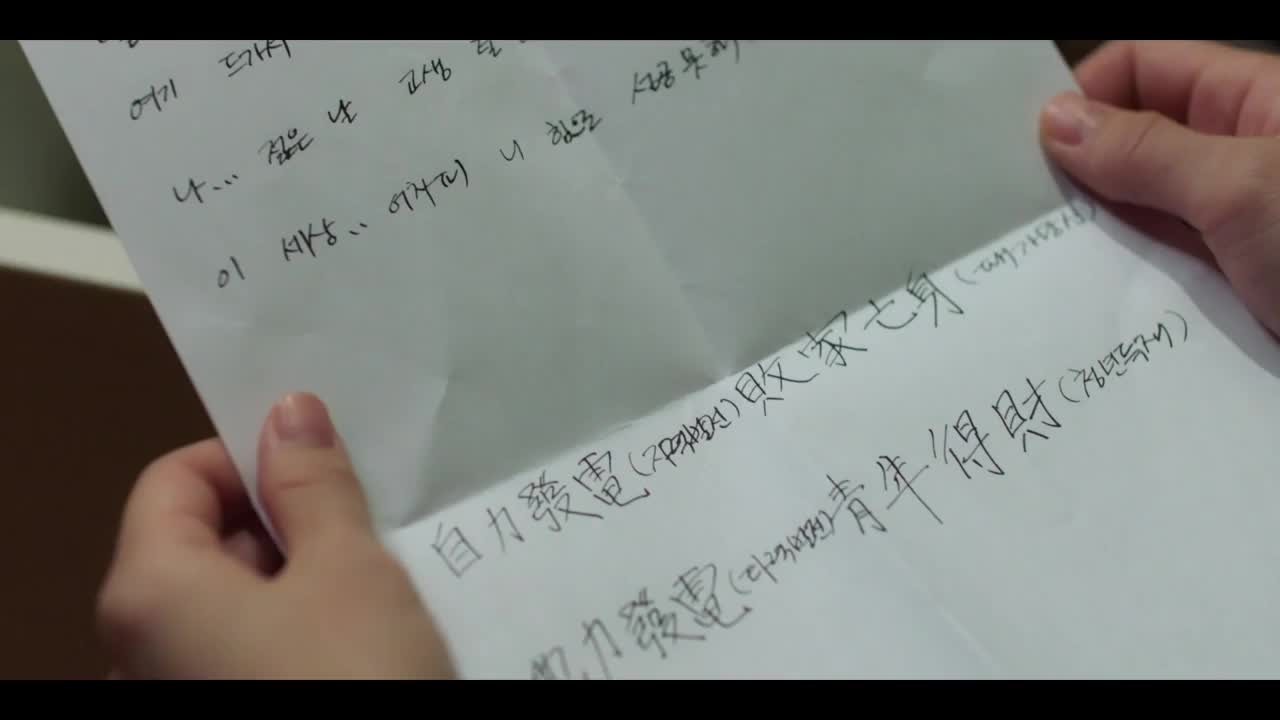 여기 드가서 고생 할
나... 젊은 날
이 세상.. 어차피 니 힘으로 성공 못해
自力發電(자력발전)敗家亡身(패가망신)
他力發電(타력발전)靑年得財(청년득재)